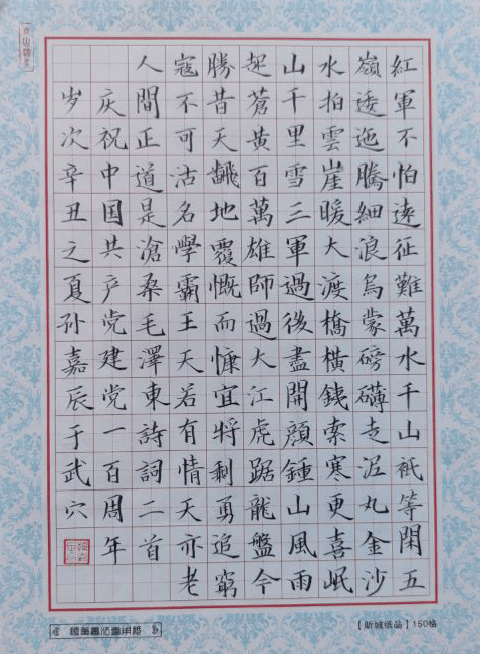 紅軍不怕遠征難萬水千山祗等閑五
嶺逶迤騰細浪烏蒙磅礴走泥丸金沙
水拍雲崖暖大渡橋橫錢索寒更喜岷
山千里雪三軍過後盡開顔鍾山風雨
起蒼黃百萬雄師過大江虎踞龍盤今
勝昔天翻地覆慨而慷宜將剩勇追窮
寇不可沽名學霸王天若有情天亦老
人間正道是滄桑毛澤東詩詞二首
庆祝中国共产党建党一百周年
岁次辛丑之夏孙嘉辰于武穴
【昕城纸品】150格